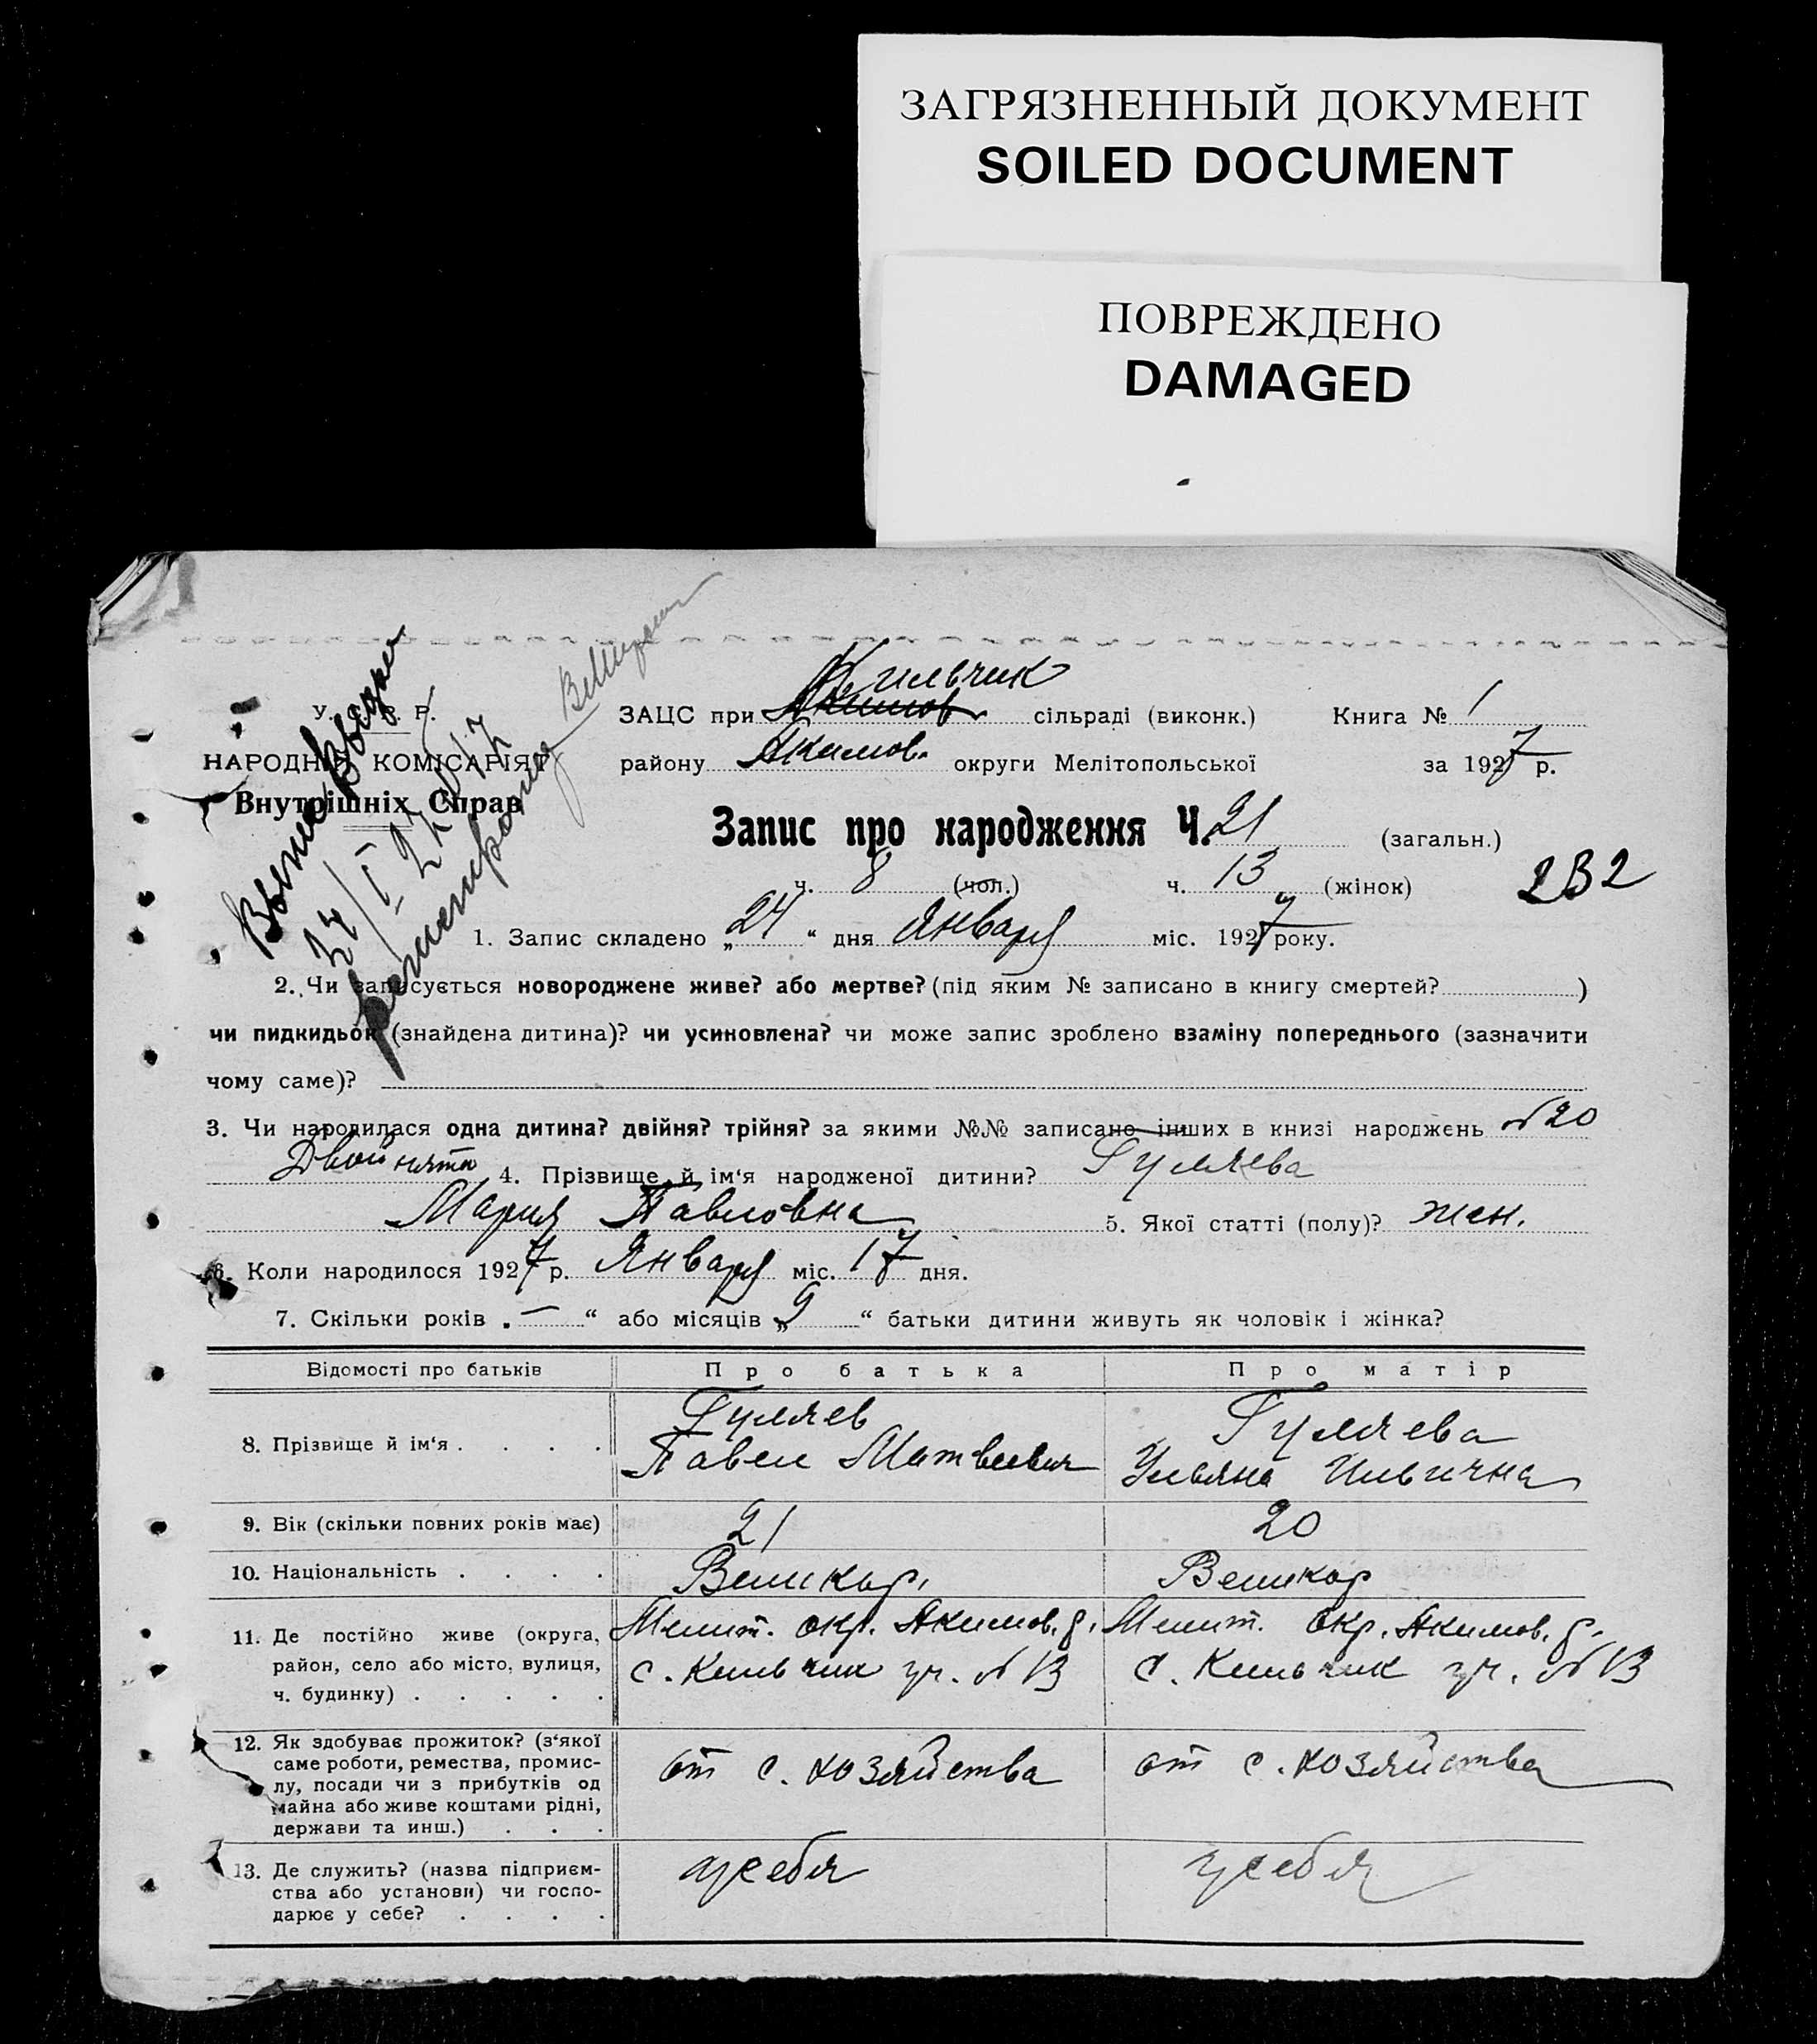 ЗАГРЯЗНЕННЫЙ ДОКУМЕНТ
SOILED DOCUMENT
ПОВРЕЖДЕНО
DAMAGED
У. С. Р. Р.
НАРОДНІЙ КОМІСАРІЯТ
Внутрішніх Справ
Кильчик
ЗАЦС при Акимов. сільраді (виконк.) Книга № 1
району Акимов. округи Мелітопольської за 1927 р.
Запис про народження Ч. 21 (загальн.)
ч. 8 (чол.) ч. 13 (жінок) 232
1. Запис складено „24“ дня Января міс. 1927 року.
2. Чи записується новороджене живе? або мертве? (під яким № записано в книгу смертей? )
чи пидкидьок (знайдена дитина)? чи усиновлена? чи може запис зроблено взаміну попереднього (зазначити
чому саме)?
3. Чи народилася одна дитина? двійня? трійня? за якими №№ записано інших в книзі народжень №20
Двойнята 4. Прізвище й ім‘я народженої дитини? Гуляева
Мария Павловна 5. Якої статті (полу)? жен.
6. Коли народилося 1927 р. Января міс. 17 дня.
7. Скільки років „—“ або місяців „9“ батьки дитини живуть як чоловік і жінка?
Відомості про батьків Про батька Про матір
8. Прізвище й ім‘я . . . . Гуляев Павел Матвеевич Гуляева Ульяна Ильична
9. Вік (скільки повних років має) 21 20
10. Національність . . . . Великор. Великор
11. Де постійно живе (округа, Мелит. окр. Акимов. р. Мелит. Окр. Акимов. р.
район, село або місто, вулиця, с. Кильчик уч. №13 с. Кильчик уч. №13
ч. будинку) . . . . .
12. Як здобуває прожиток? (з‘якої
саме роботи, ремества, промис-
лу, посади чи з прибутків од от с. хозяйства от с. хозяйства
майна або живе коштами рідні,
держави та инш.) . . .
13. Де служить? (назва підприєм- у себя у себя
ства або установи) чи госпо-
дарює у себе? . . . .